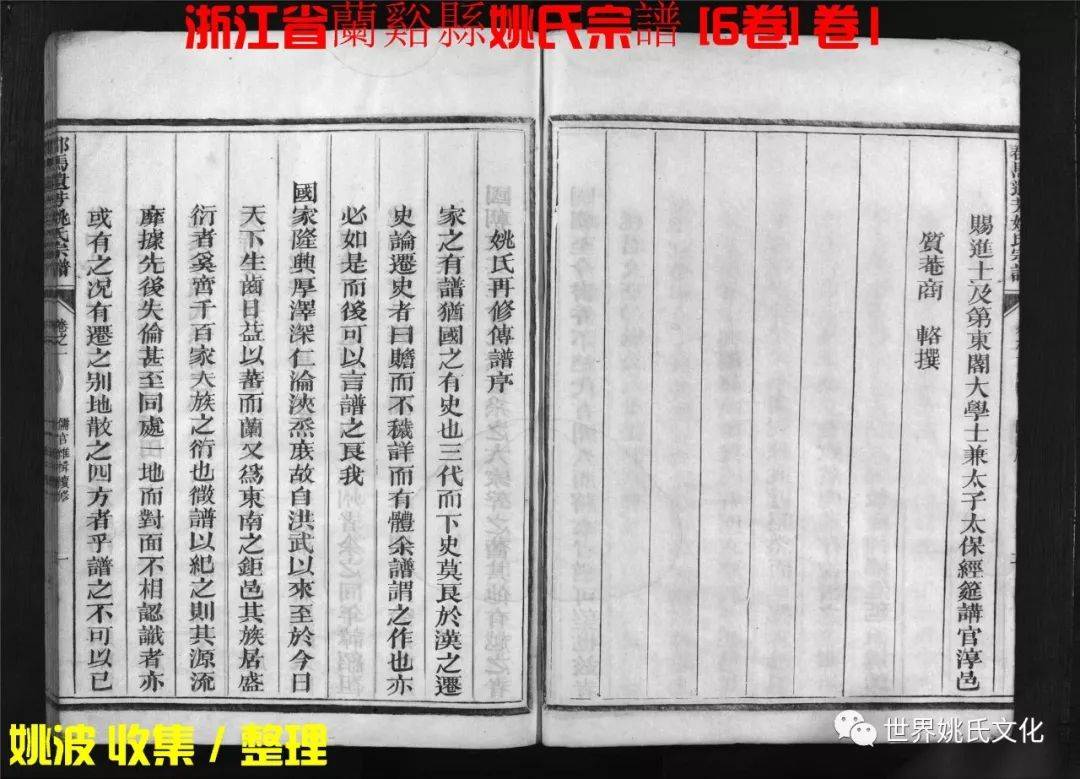 浙江省蘭谿縣姚氏宗譜 [6卷] 卷1
賜進士及第東閣大學士兼太子太保經筵講官淳邑
質菴商　輅撰
姚氏再修傳譜序
家之有譜猶國之有史也三代而下史莫良於漢之遷
史論遷史者曰贍而不穢詳而有體余譜謂之作也亦
必如是而後可以言譜之良我
國家隆興厚澤深仁淪浹烝庶故自洪武以來至於今日
天下生齒日益以蕃而蘭又為東南之鉅邑其族居盛
衍者奚啻千百家大族之衍也微譜以紀之則其源流
靡據先後失倫甚至同處一地而對面不相認識者亦
或有之况有遷之别地散之四方者乎譜之不可以已
姚氏宗譜
卷之一
姚波 收集 / 整理
世界姚氏文化